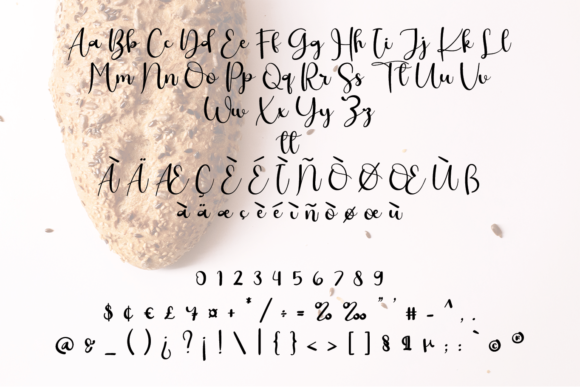 Aa Bb Cc Dd Ee Ff Gg Hh Ii Jj Kk Ll
Mm Nn Oo Pp Qq Rr Ss Tt Uu Vv
Ww Xx Yy Zz
tt
À Ä Æ Ç È É Ì Ñ Ò Ø Œ Ù ß
à ä æ ç è é ì ñ ò ø œ ù
0 1 2 3 4 5 6 7 8 9
$ ¢ € £ ¥ ¤ + * / ÷ = % ‰ " ' # - ^ , .
@ & _ ( ) ¿ ? ¡ ! \ | { } < > [ ] § ¶ µ ; : ` © ®